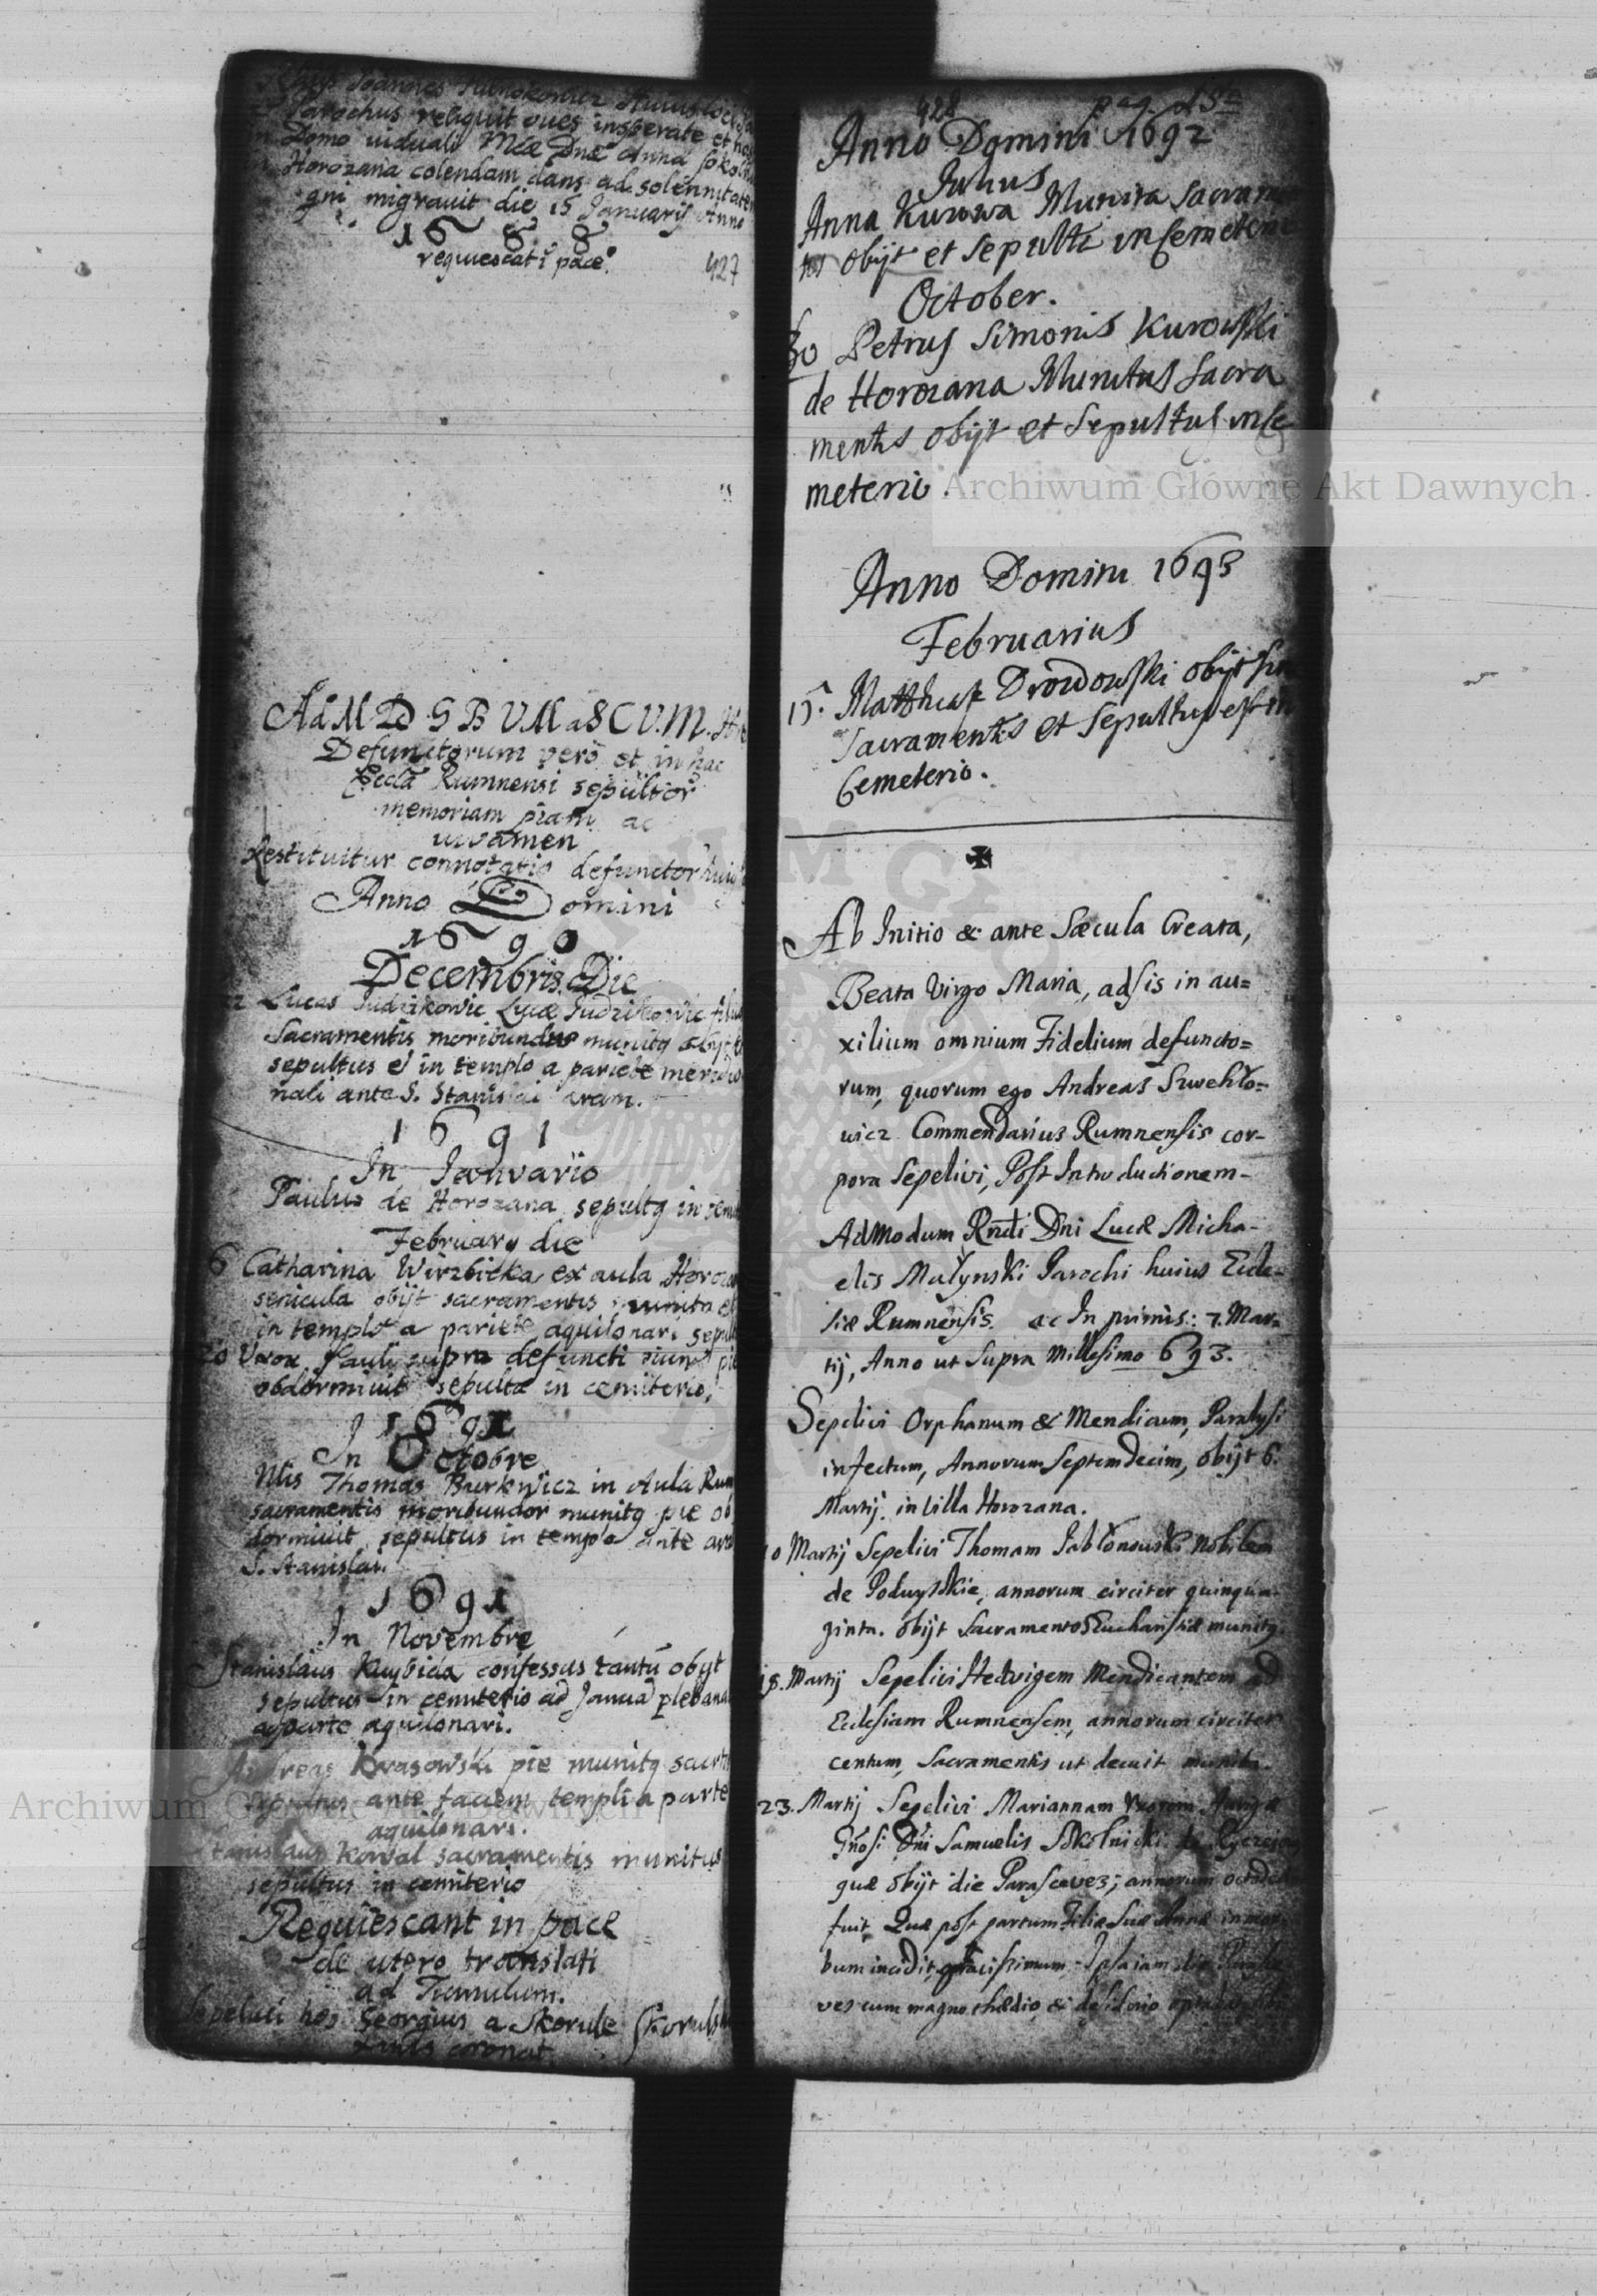 Joannes
Parochus reliquit oues insperate et
Domo uiduali Mcæ Dnæ Anna
Horozana colendam dans ad solennitatem
gni migrauit die 15 Januarij Anno
1688
requiescat i pace.
427
A a M D G B V M a S C V. M.
Defunctorum vero et in hac
Eccla Rumnensi sepultor
memoriam piam ac
iuvamen
Restituitur connotatio defunctor huig
Anno Domini
1690
Decembris Die
Lucas Judzikowic Lucæ Judzikowic
Sacramentis moribundor munitg obijt
sepultus e in templo a pariete meridio
nali ante S. Stanislai aram.
1691
In Ianvario
Paulus de Horozana sepultg in
February die
6 Catharina Wirzbicka ex aula
senicula obijt sacramentis munita
in templo a pariete aquilonari
20 Uxor Pauli supra defuncti
obdormiuit sepulta in cemiterio,
1691
In Octobre
Thomas Burkwicz in Aula
sacramentis moribundor munitg pie ob
dormiuit sepultus in templo ante
S. Stanislai.
1691
In Novembre
Stanislaus Kuybida confessus tantu obijt
sepultus in cemiterio ad Janua
a parte aquilonari.
Andreas Kwasowski pie munitg
sepultus ante faciem templi a parte
aquilonari.
Stanislaus Kowal sacramentis munitus
sepultus in cemiterio
Requiescant in pace
de utero translati
ad Tumulum.
Sepeliui hos Georgius a Skorule
428 pag.
Anno Domini 1692
Anna Kurowa Munita Sacram
tis obijt et Sepulta in Cemeterio
October.
30 Petrus Simonis Kurowski
de Horozana Munitus Sacra
mentis obijt et Sepultus in Ce
meterio.
Anno Domini 1693
Februarius
15. Matthias Drozdowski obijt sine
Sacramentis et Sepultus est in
Cemeterio.
Ab Initio & ante Sæcula Creata,
Beata Virgo Maria, adsis in au=
xilium omnium Fidelium defuncto=
rum, quorum ego Andreas Szwehło=
wicz Commendarius Rumnensis cor-
pora Sepelivi, Post Introductionem-
Admodum Rndi Dni Lucæ Micha-
elis Małynski Parochi huius Eccle-
siæ Rumnensis. ac In primis: 7. Mar=
tij, Anno ut Supra Millesimo 693.
Sepelivi Orphanum & Mendicum, Paralysi
infectum, Annorum Septemdecim, obijt 6.
Martij. in Villa Horozana.
10 Martij Sepelivi Thomam Jabłonowski Nobilem
de annorum circiter quinqua-
ginta. obijt Sacramento SEucharistiæ munitg.
18. Martij Sepelivi Hedvigem Mendicantem ad
Ecclesiam Rumnensem, annorum circiter
centum, Sacramentis ut decuit munita.
23. Martij Sepelivi Mariannam Uxorem Aurigæ
Gnosi Dni Samuelis Sokolnicki de
quæ obijt die Parasceves; annorum
fuit, Quæ post partum Filiæ Suæ Annæ in mor
bum incidit, Ipsa iam die
ves cum magno thædio, & desiderio
Archiwum Główne Akt Dawnych
Archiwum Główne Akt Dawnych